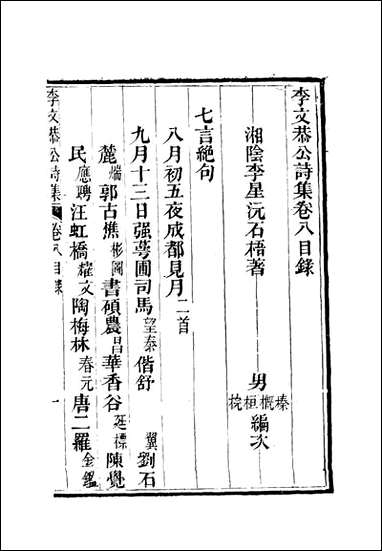 李文恭公詩集卷八目錄
湘陰李星沅石梧著
男榛概桓梡編次
七言絕句
八月初五夜成都見月二首
九月十三日强蕚圃司馬望泰偕舒翼劉石
麓端郭古樵彬圖書碩農昌華香谷廷標陳覺
民應聘汪虹橋耀文陶梅林春元唐二羅金鑑
李文恭公詩集
卷八目錄
一